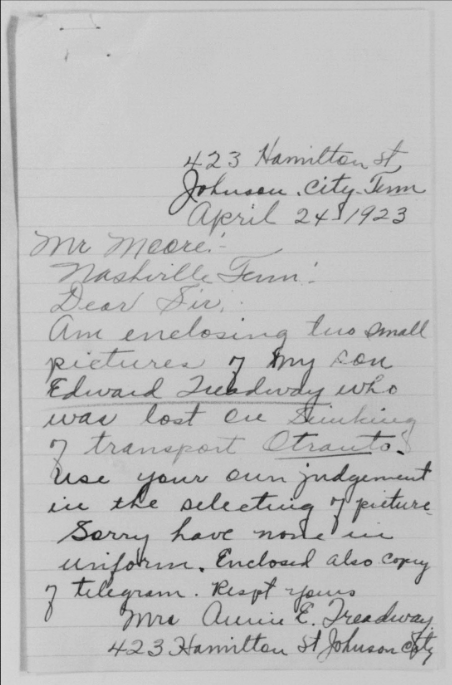 423 Hamilton St,
Johnson. City. Tenn
April 24 1923
Mr Moore:-
Nashville Tenn:
Dear Sir,:
Am enclosing two small
pictures of my son
Edward Treadway who
was lost on Sinking
of transport Otranto.
Use your own judgement
in the selecting of picture
Sorry have none in
uniform. Enclosed also copy
of telegram. Respt yours
Mrs Annie E. Treadway.
423 Hamilton St Johnson City